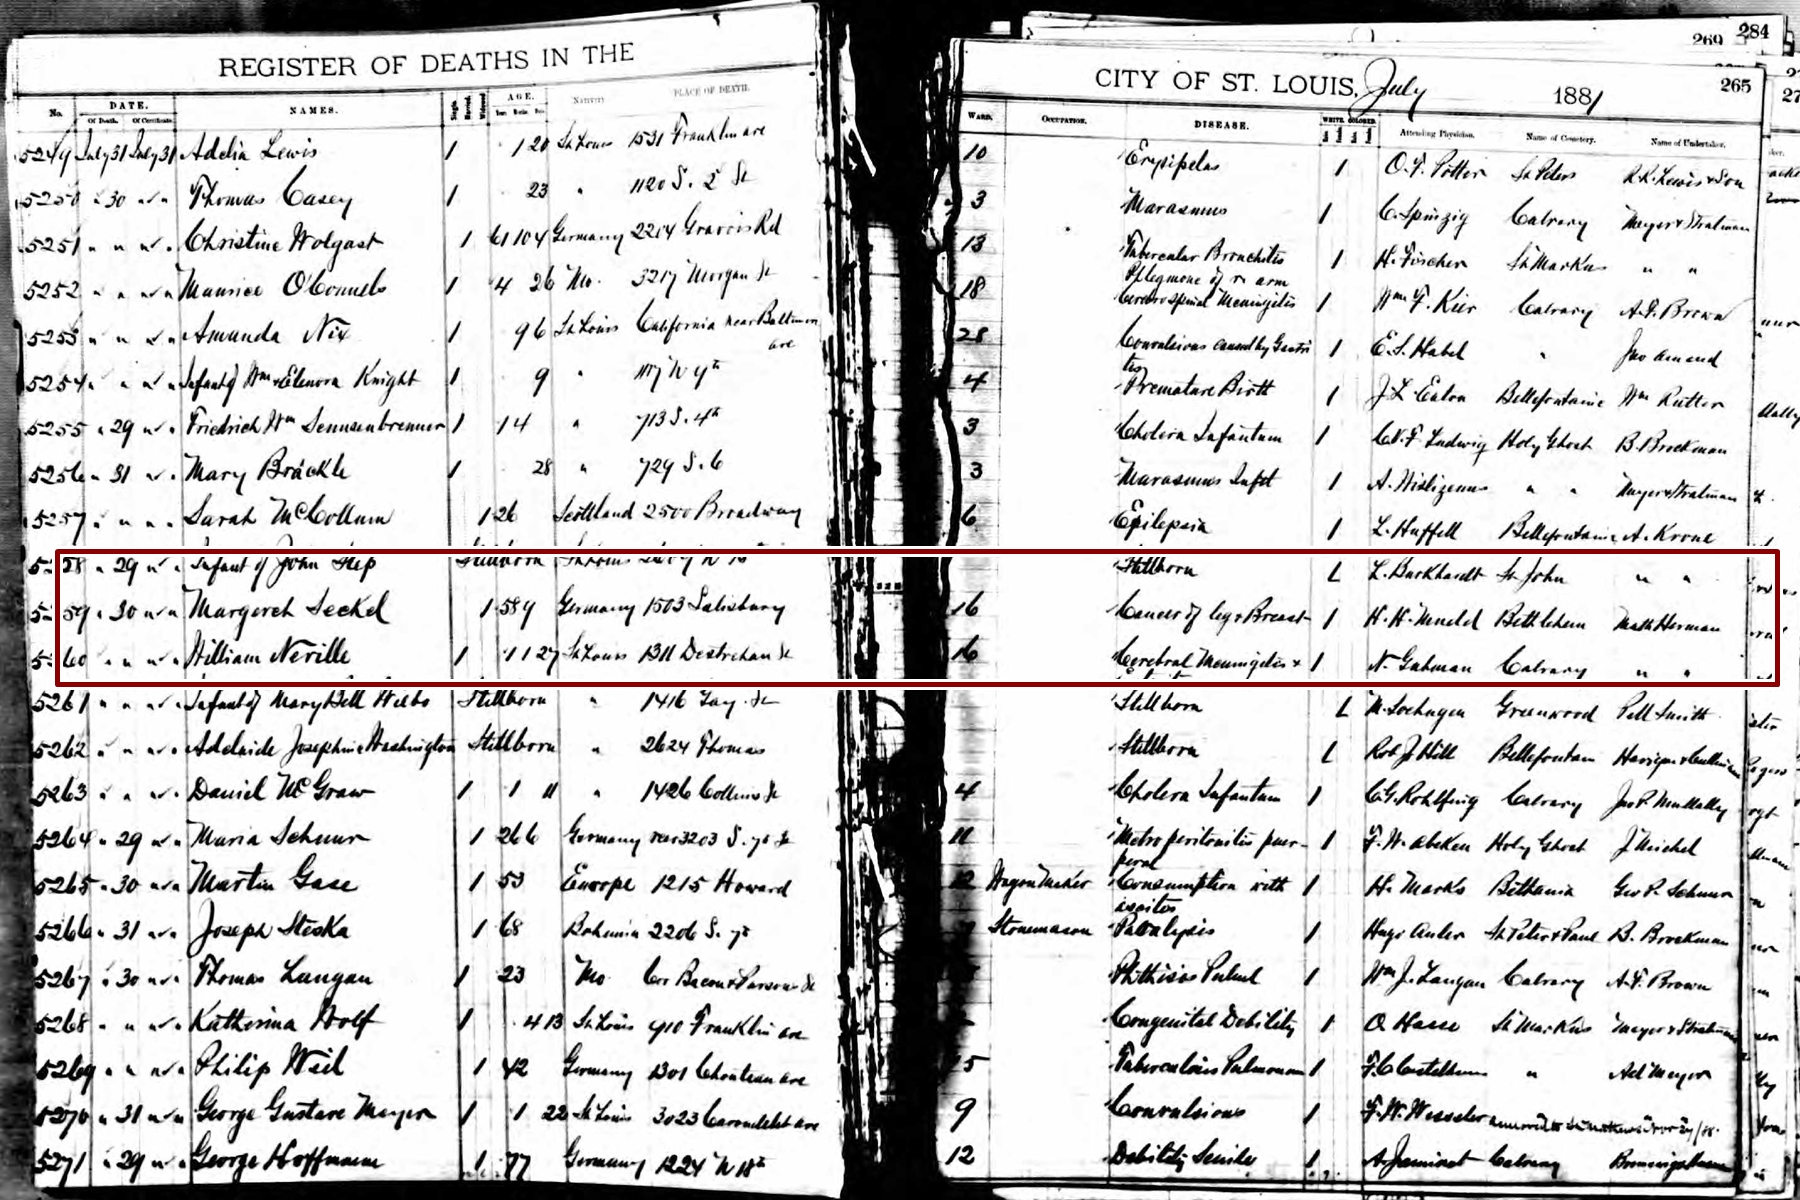 284
269
REGISTER OF DEATHS IN THE
CITY OF ST. LOUIS, July 1881 265
No. DATE. Of Death. Of Certificate. NAMES. Single. Married. Widowed AGE. NATIVITY PLACE OF DEATH.
WARD. OCCUPATION. DISEASE. WHITE. COLORED. Attending Physician. Name of Cemetery. Name of Undertaker.
5249 July 31 July 31 Adelia Lewis 1 1 20 St Louis 1531 Franklin ave 10 Erysipelas 1 O. F. Potter St Peters R.R. Lewis & Son
5250 " 30 " " Thomas Casey 1 23 " 1120 S. 2 St 3 Marasmus 1 C. Spinzig Calvary Meyer & Stratman
5251 " " " " Christine Wolgast 1 61 10 4 Germany 2214 Gravois Rd 13 Tubercular Bronchitis 1 H. Fischer St Markus " "
Phlegmone of r. arm
5252 " " " " Maurice O'Connels 1 4 26 Mo. 3217 Morgan St 18 Cerebro spinal Meningitis 1 Wm F. Kier Calvary A.F. Brown
5253 " " " " Amanda Nix 1 9 6 St Louis California near Baltimore ave 28 Convulsions caused by Gastritis 1 E.S. Habel " Jno Amend
5254 " " " " Infant of Wm & Elenora Knight 1 9 " 1117 N 9th 4 Premature Birth 1 J. L. Eaton Bellefontaine Wm Rutter
5255 " 29 " " Friedrich Wm Sennsenbrenner 1 1 4 " 713 S. 4th 3 Cholera Infantum 1 C.F. Ludwig Holy Ghost B. Brockman
5256 " 31 " " Mary Bräckle 1 28 " 729 S. 6 3 Marasmus Inft 1 A. Wislizenus " " Meyer & Stratman
5257 " " " " Sarah McCollum 1 26 Scotland 2500 Broadway 6 Epilepsia 1 L. Huffell Bellefontaine A. Krone
5258 " 29 " " Infant of John Step Stillborn St Louis Stillborn 1 L. Burkhardt St John " "
5259 " 30 " " Margareth Seckel 1 58 9 Germany 1503 Salisbury 16 Cancer of leg & Breast 1 H. H. Mudd Bethlehem Math Herman
5260 " " " " William Neville 1 1 1 27 St Louis 1311 Destrehan St 16 Cerebral Meningitis & 1 N. Guhman Calvary " "
5261 " " " " Infant of Mary Bell Webbs Stillborn " 1416 Gay St Stillborn 1 Greenwood Pell Smith
5262 " " " " Adelaide Josephine Washington Stillborn " 2624 Thomas Stillborn 1 Rob J. Hill Bellefontain
5263 " " " " Daniel McGraw 1 1 11 " 1426 Collins St 4 Cholera Infantum 1 C.G. Rohlfing Calvary Jno P. Mullally
5264 " 29 " " Maria Schuur 1 26 6 Germany rear 3203 S. 7th St 11 Metro peritonitis puerperal 1 F. W. Abeken Holy Ghost J. Neichel
5265 " 30 " " Martin Gase 1 53 Europe 1215 Howard 12 Wagon Maker Consumption with ascites 1 H. Marks Bethania Geo P. Schnur
5266 " 31 " " Joseph Steska 1 68 Bohemia 2206 S. 7th Stonemason Paralysis 1 Hugo Auler St Peter & Paul B. Brockman
5267 " 30 " " Thomas Langan 1 23 Mo Cor Bacon & Parsons St Phthisis Pulml 1 Wm J. Langan Calvary A.F. Brown
5268 " " " " Katherina Wolf 1 4 13 St Louis 910 Franklin ave Congenital Debility 1 O Hasse St Markus Meyer & Stratman
5269 " " " " Philip Weil 1 42 Germany 1301 Chouteau ave 15 Tuberculosis Pulmonum 1 " Ad Meyer
5270 " 31 " " George Gustave Meyer 1 1 22 St Louis 3023 Carondelet ave 9 Convulsions 1 F.W. Wesseler
5271 " 29 " " George Hoffmann 1 77 Germany 1224 N 18th 12 Debility Senile 1 A. Jaminet Calvary